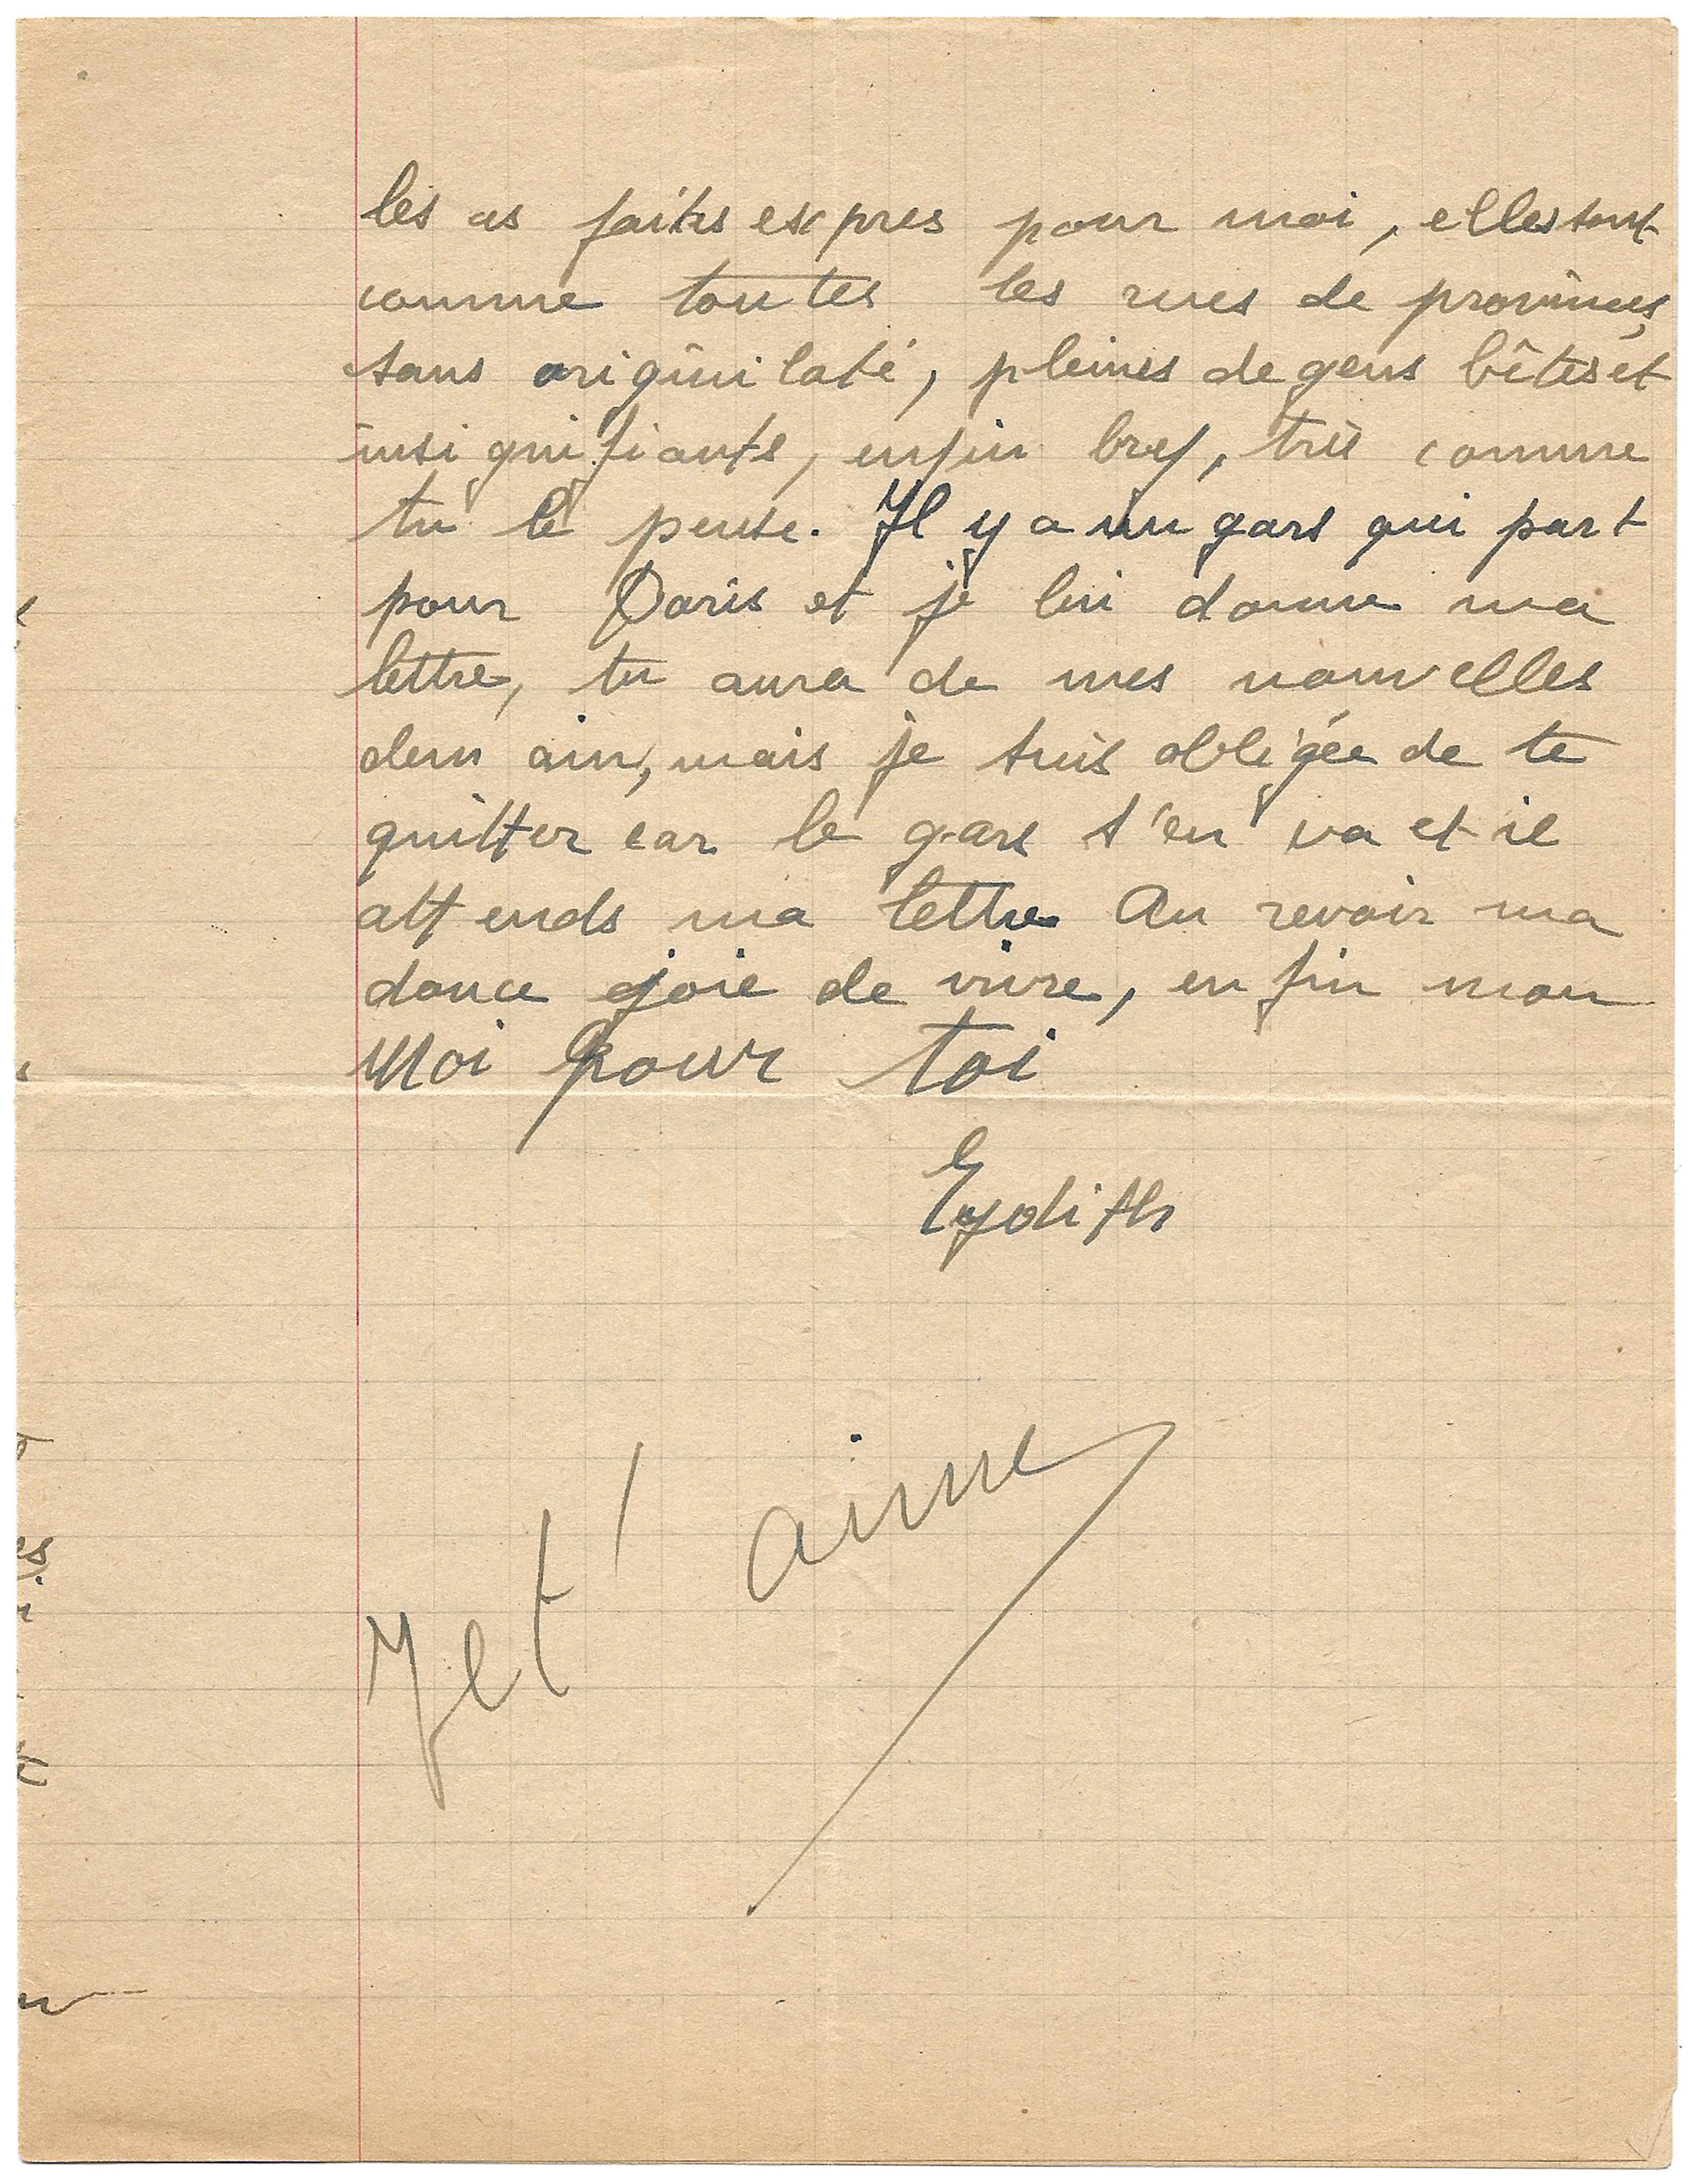 les as faites expres pour moi, elles sont
comme toutes les rues de provinces,
sans originilaté, pleines de gens bêtes et
insignifiants, enfin bref, très comme
tu le pense. Il y a un gars qui part
pour Paris et je lui donne ma
lettre, tu aura de mes nouvelles
demain, mais je suis obligée de te
quitter car le gars s'en va et il
attends ma lettre Au revoir ma
douce joie de vivre, enfin mon
Moi pour toi
Eydith
Je t'aime